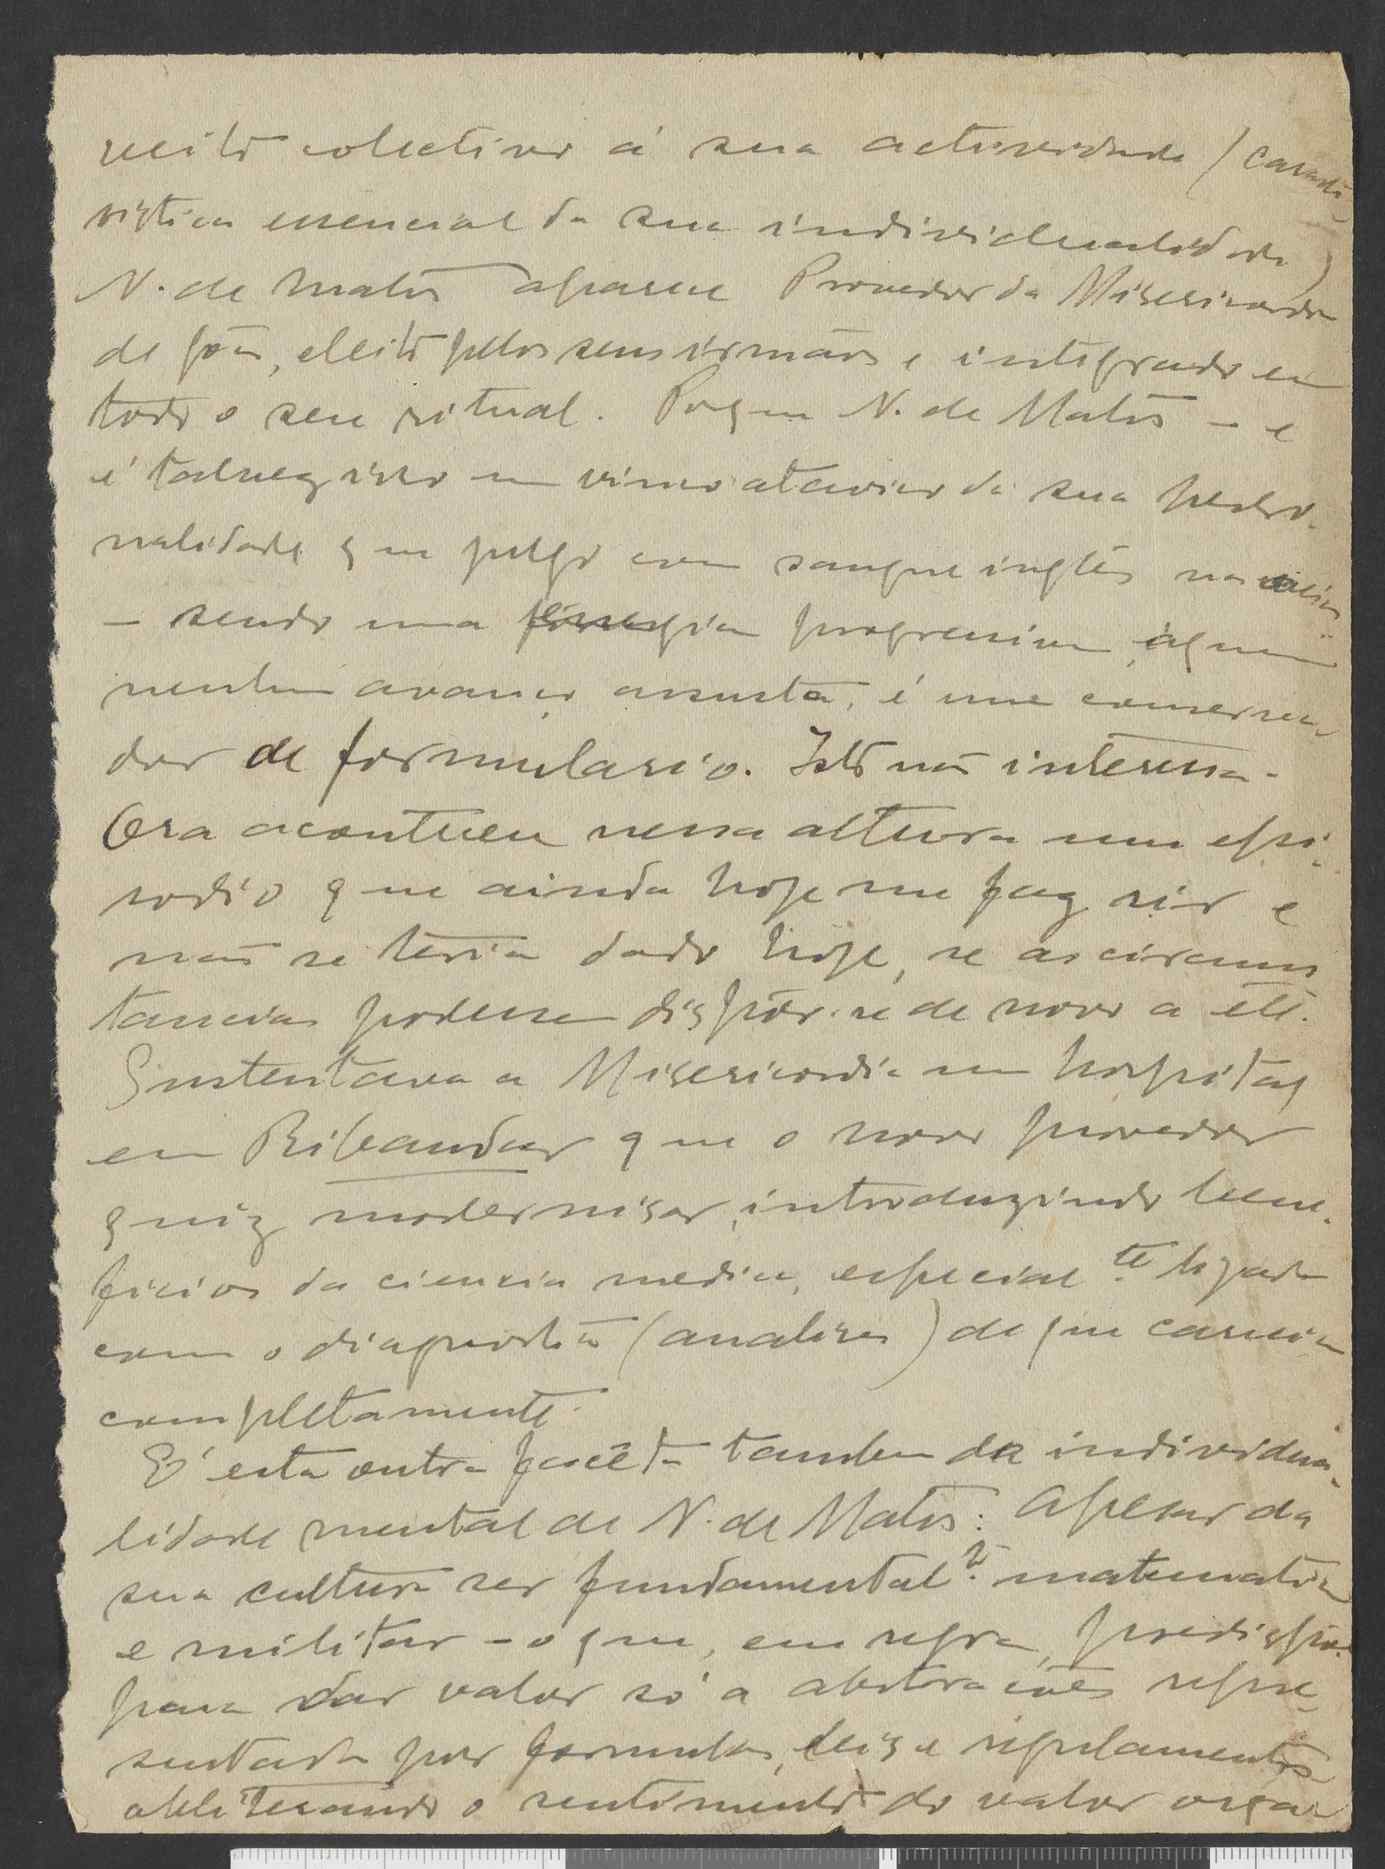 veito colectivo á sua actividade (caracte-
ristica essencial da sua individualidade)
N. de Matos aparece Provedor da Misericordia
de Gôa, eleito pelos seus irmãos e integrado em
todo o seu ritual. Porque N. de Matos – e
é talvez isso um vinco atavico da sua perso-
nalidade que julgo com sangue inglês nas veias
– sendo uma energia progressiva, a quem
nenhum avanço assusta, é um conserva-
dor de formulario. Isto não interessa.
Ora aconteceu nessa altura um epi-
sodio que ainda hoje me faz rir e
não se teria dado hoje, se as circuns
tancias podessem dispôr-se de novo a ele.
Sustentava a Misericordia um hospital
em Ribandar que o novo provedor
quiz modernisar, introduzindo bene-
ficios da ciencia medica, especialte ligada
com o diagnostico (analises) de que carecia
completamente.
É esta outra faceta tambem da individua-
lidade mental de N. de Matos: apesar da
sua cultura ser fundamentalte matematica
e militar – o que, em regra, predispõe
para dar valor só a abstrações repre-
sentadas por formulas, leis e regulamentos
obliterando o sentimento do valor orga-